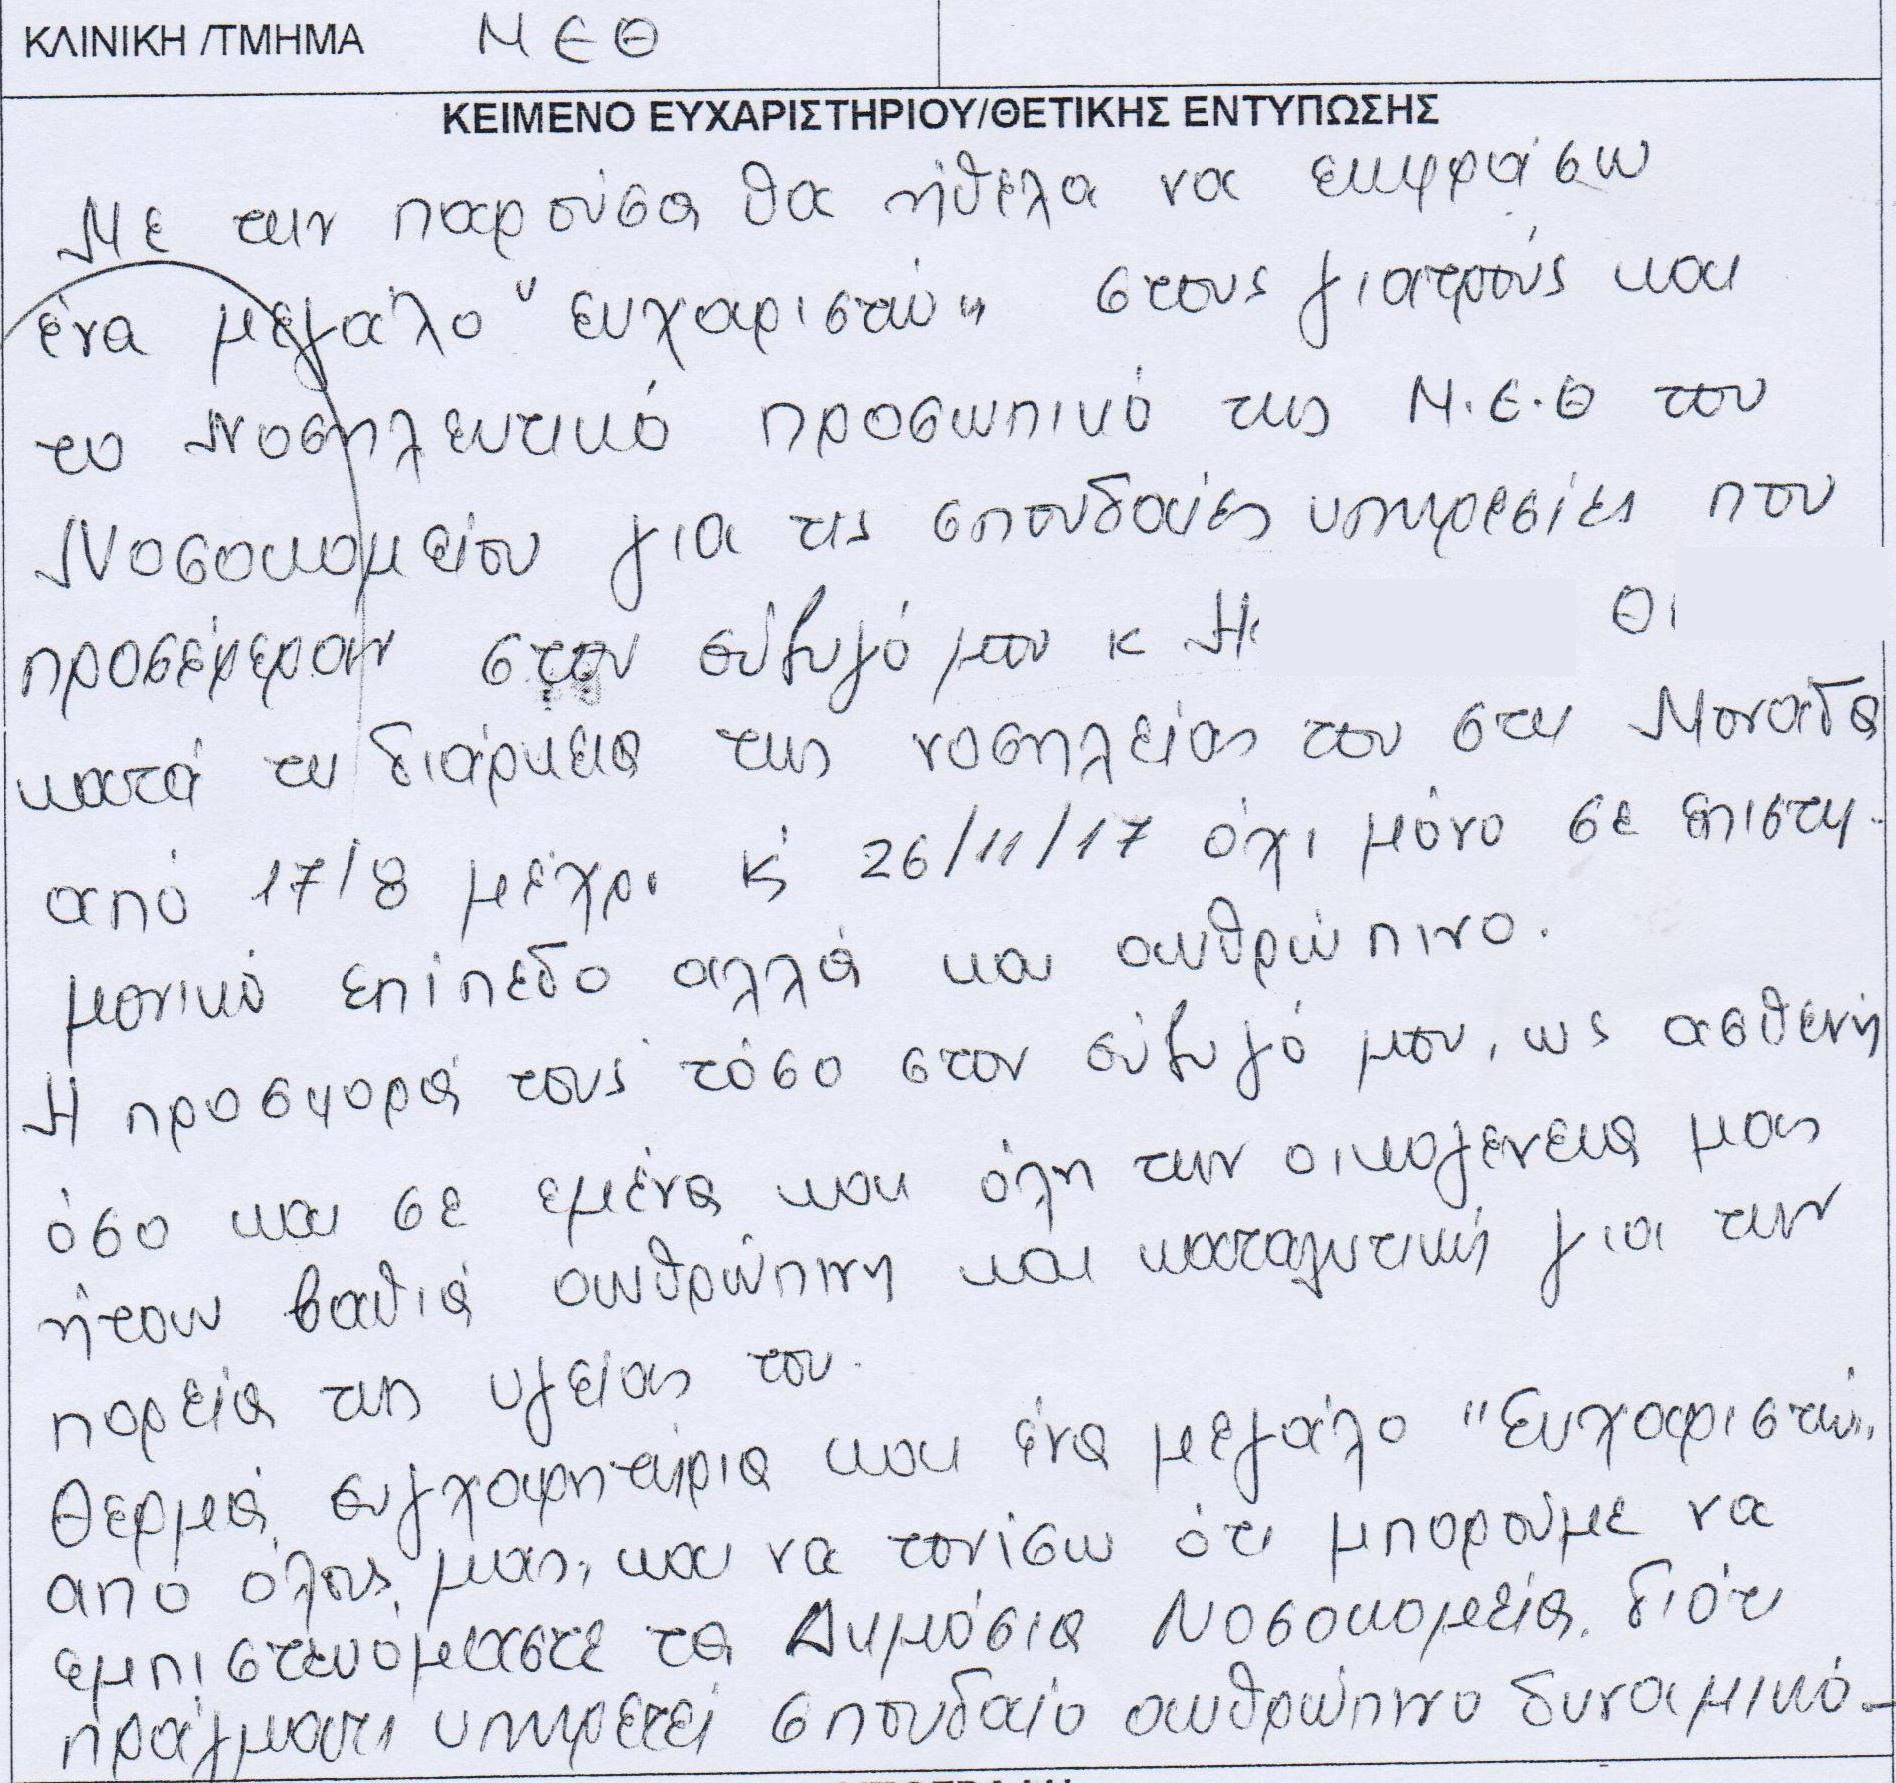 ΚΛΙΝΙΚΗ /ΤΜΗΜΑ ΜΕΘ
ΚΕΙΜΕΝΟ ΕΥΧΑΡΙΣΤΗΡΙΟΥ/ΘΕΤΙΚΗΣ ΕΝΤΥΠΩΣΗΣ
Με την παρούσα θα ήθελα να εκφράσω
ένα μεγάλο "ευχαριστώ" στους γιατρούς και
το Νοσηλευτικό προσωπικό της Μ.Ε.Θ του
Νοσοκομείου για τις σπουδαίες υπηρεσίες που
προσέφεραν στον σύζυγό μου κ
κατά τη διάρκεια της νοσηλείας του στη Μονάδα
από 17/8 μέχρι κ' 26/11/17 όχι μόνο σε επιστη-
μονικό επίπεδο αλλά και ανθρώπινο.
Η προσφορά τους τόσο στον σύζυγό μου, ως ασθενή
όσο και σε εμένα και όλη την οικογένεια μας
ήταν βαθιά ανθρώπινη και καταλυτική για την
πορεία της υγείας του.
Θερμά συγχαρητήρια και ένα μεγάλο "Ευχαριστώ"
από όλους μας, και να τονίσω ότι μπορούμε να
εμπιστευόμαστε τα Δημόσια Νοσοκομεία. διότι
πράγματι υπηρετεί σπουδαίο ανθρώπινο δυναμικό-